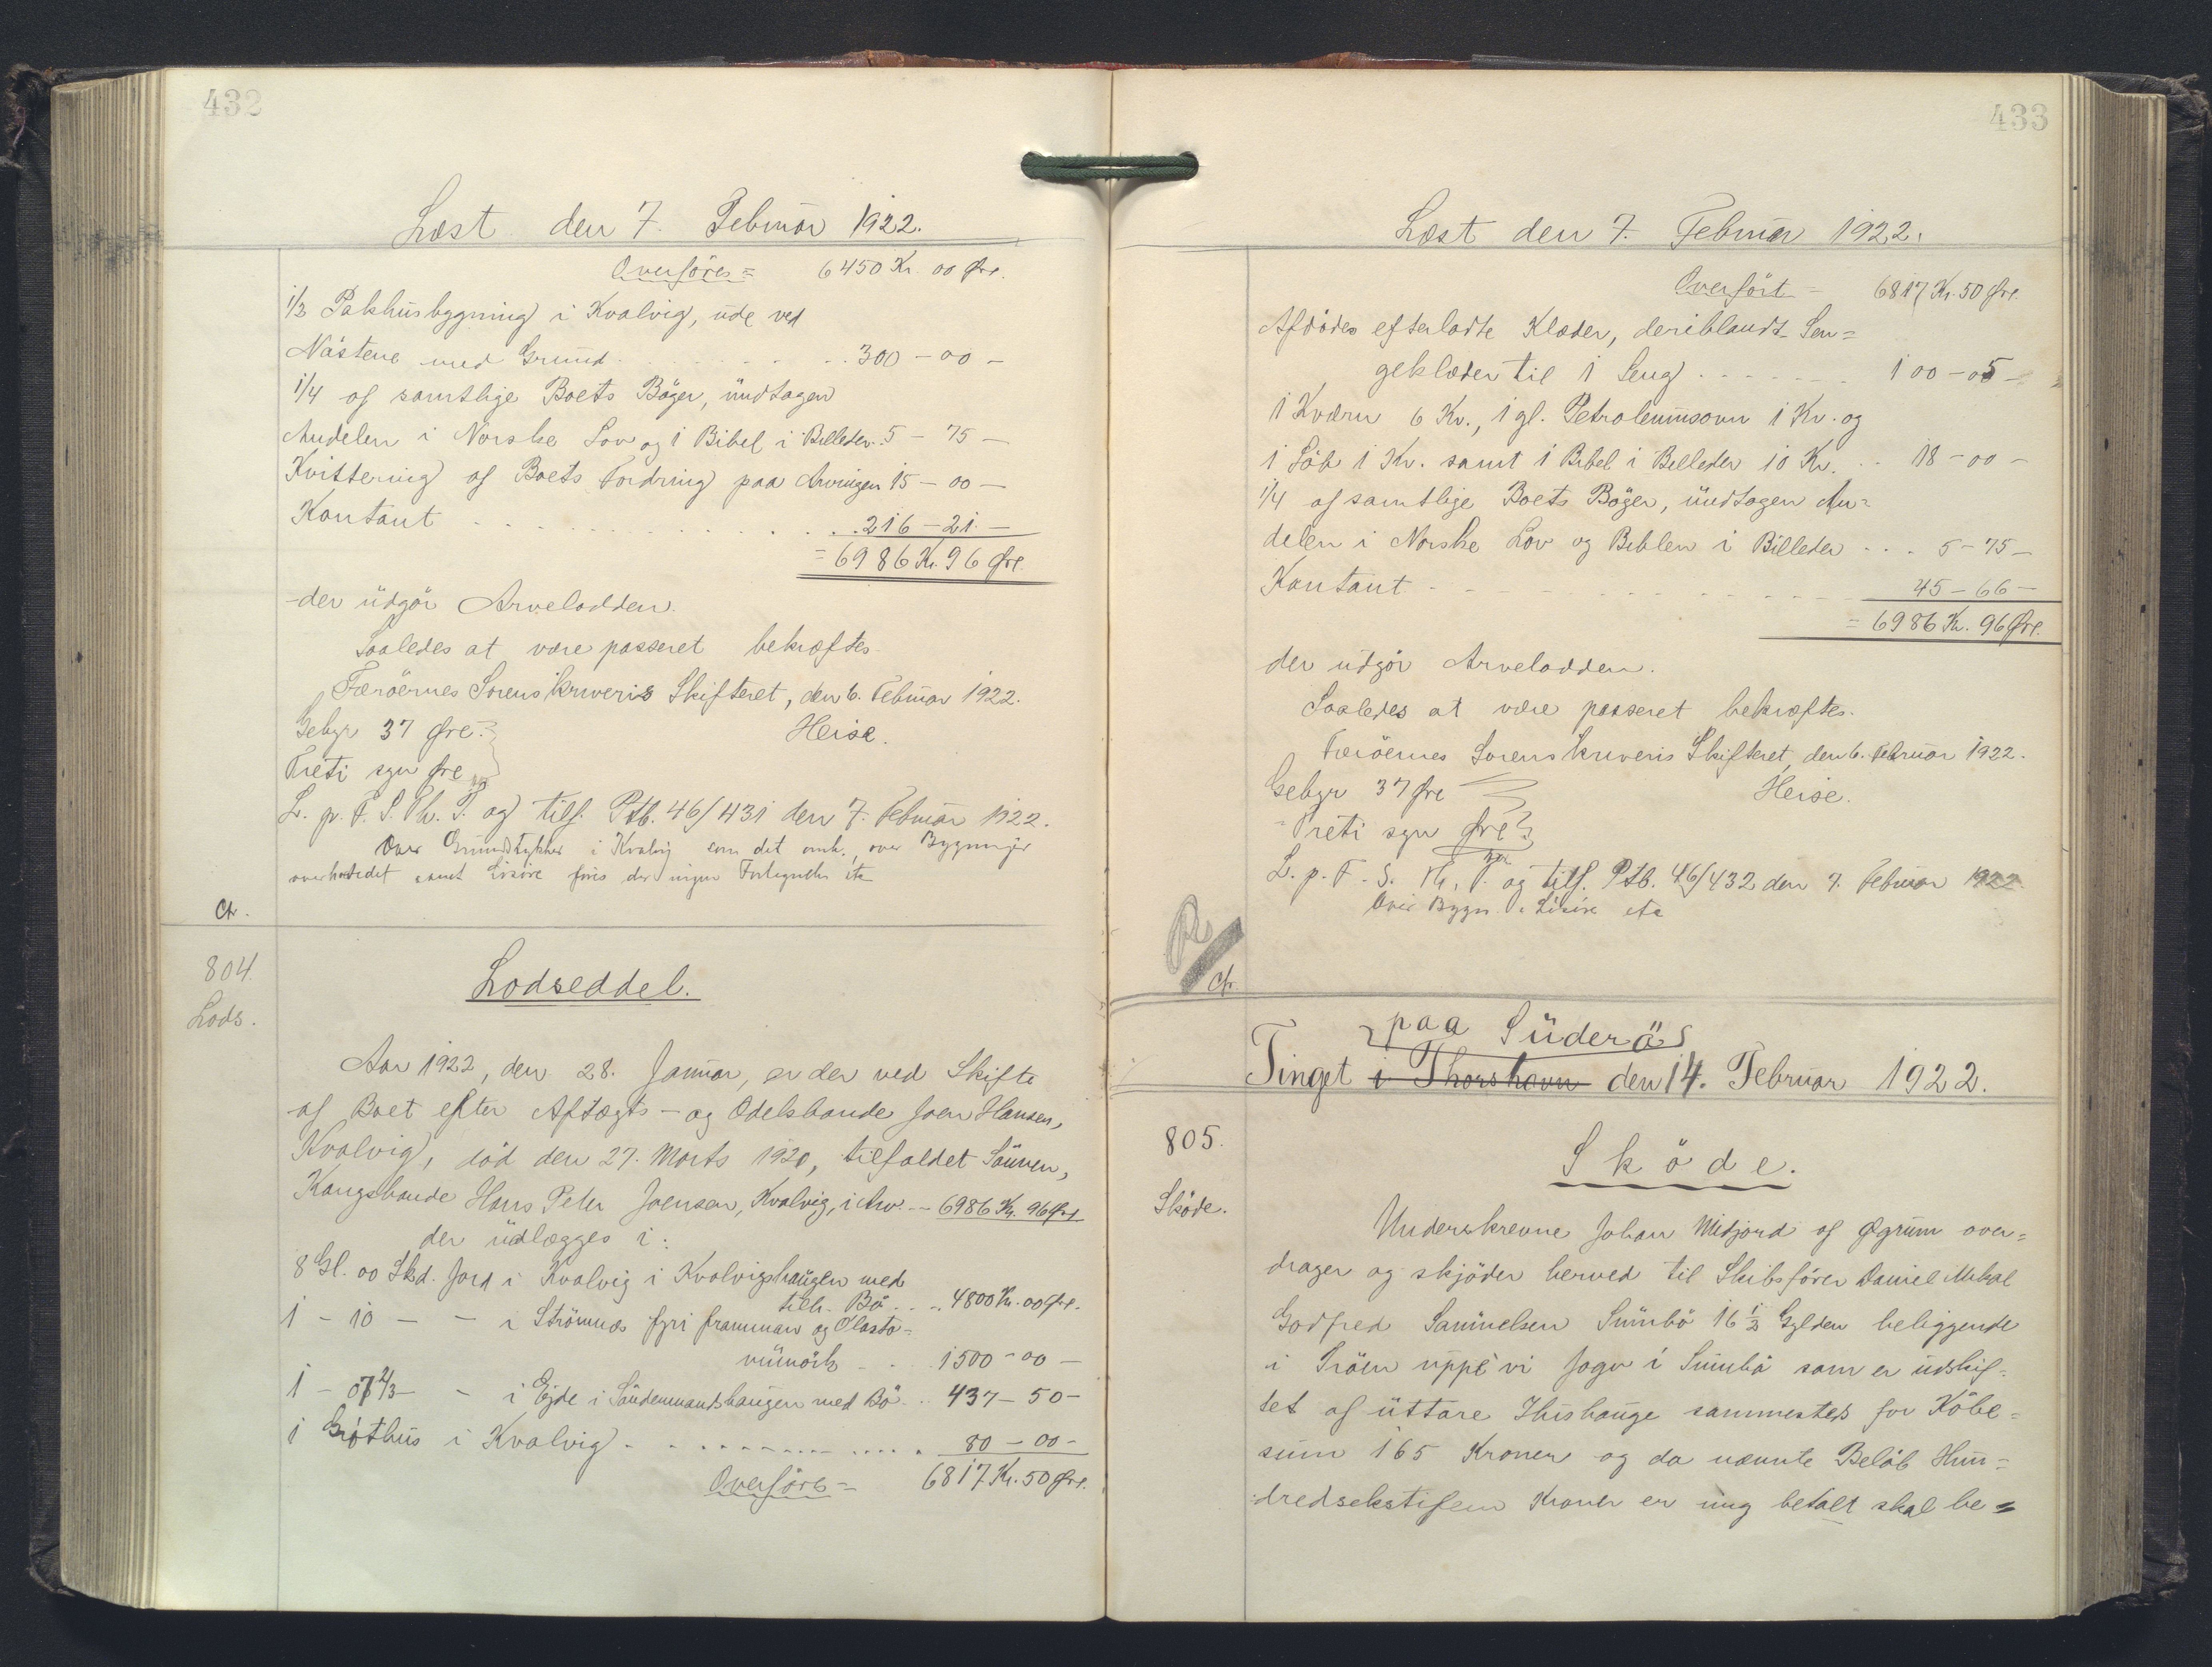 432
Læst den 7. Februar 1922.
Overføres = 6450 Kr. 00 Øre.
1/3 Pakhusbygning i Kvalvig, ude ved
Nästene med Grund . . . . . . 300 - 00 -
1/4 af samtlige Boets Bøger, undtagen
Andelen i Norske Lov og 1 Bibel i Billeder. 5 - 75 -
Kvittering af Boets Fordring paa Arvingen 15 - 00 -
Kontant . . . . . . 216 - 21 -
= 6986 Kr. 96 Øre.
- der udgør Arvelodden.
Saaledes at være passeret bekræftes.
Færøernes Sorenskriveris Skifteret, den 6. Februar 1922.
Gebyr 37 Øre. Heise.
Treti syv Øre
L. p. F. S. Th. T. og tilf. Ptb. 46/431 den 7. Februar 1922.
Over Grundstykker i Kvalvig som det omh., over Bygninger
overhovedet samt Løsøre føres der ingen Fortegnelse
Ch.
804.
Lods.
Lodseddel.
Aar 1922, den 28. Januar, er der ved Skifte
af Boet efter Aftægts- og Odelsbonde Joen Hansen,
Kvalvig, død den 27. Marts 1920, tilfaldet Sønnen,
Kongsbonde Hans Peter Joensen, Kvalvig, i Arv. - 6986 Kr. 96 Øre
der udlægges i:
8 Gl. 00 Skd. Jord i Kvalvig i Kvalvigshaugen med
tilh. Bø . . . 4800 Kr. 00 Øre.
1 - 10 - - i Strömnæs fyri framman og
1500 - 00 -
1 - 07 2/3 - - i Ejde i Söndenmandshaugen med Bø . . 437 - 50 -
1 Gröthus i Kvalvig . . . . . . 80 - 00 -
Overføres = 6817 Kr. 50 Øre.
433
Læst den 7. Februar 1922.
Overført = 6817 Kr. 50 Øre.
Afdødes efterladte Klæder, deriblandt Sen=
geklæder til 1 Seng . . . . . . 100 - 05 -
1 Kværn 6 Kr., 1 gl. Petroleumsovn 1 Kr. og
1 Løb 1 Kr. samt 1 Bibel i Billeder 10 Kr. . . 18 - 00 -
1/4 af samtlige Boets Bøger, undtagen An=
delen i Norske Lov og Biblen i Billeder . . . 5 - 75 -
Kontant . . . . . . 45 - 66 -
= 6986 Kr. 96 Øre.
der udgør Arvelodden.
Saaledes at være passeret bekræftes.
Færøernes Sorenskriveris Skifteret, den 6. Februar 1922.
Gebyr 37 Øre Heise.
Treti syv Øre
L. p. F. S. Th. T. og tilf. Ptb. 46/432 den 7. Februar 1922.
Over Bygn. Løsøre etc
Ch.
paa Suderö
Tinget i Thorshavn den 14. Februar 1922.
805.
Sköde.
Sköde.
Underskrevne Johan Midjord af Øgrum over=
drager og skjøder herved til Skibsfører Daniel Mikal
Godfred Samuelsen Sumbö 16 1/2 Gylden beliggende
i Tröen uppi vi Jogv i Sumbö som er udskif=
tet af üttare Húshauge sammesteds for Købe=
sum 165 Kroner og da nævnte Beløb Hun=
dredsekstifem Kroner er mig betalt skal be=